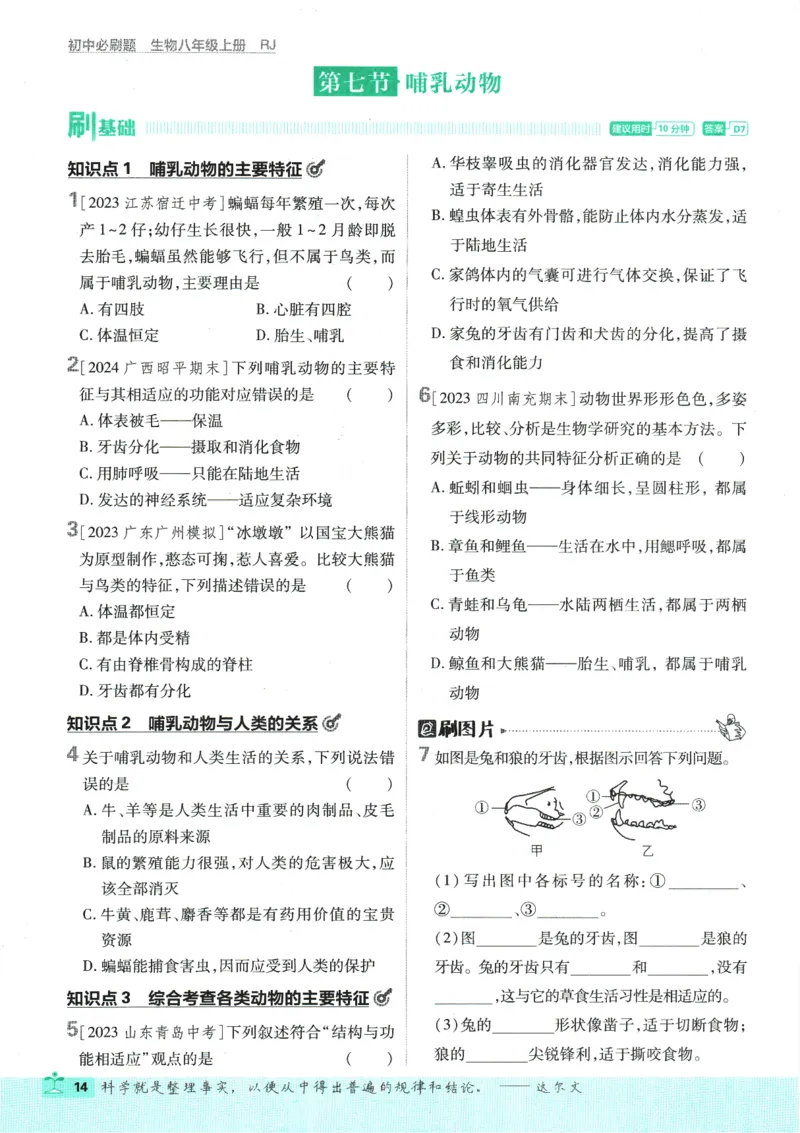 初中必刷题 生物八年级上册 RJ
第七节 哺乳动物
刷基础
建议用时 10分钟 答案 D7
知识点1 哺乳动物的主要特征
1[2023江苏宿迁中考]蝙蝠每年繁殖一次,每次
产1~2仔;幼仔生长很快,一般1~2月龄即脱
去胎毛,蝙蝠虽然能够飞行,但不属于鸟类,而
属于哺乳动物,主要理由是 ( )
A.有四肢 B.心脏有四腔
C.体温恒定 D.胎生、哺乳
2[2024广西昭平期末]下列哺乳动物的主要特
征与其相适应的功能对应错误的是 ( )
A.体表被毛——保温
B.牙齿分化——摄取和消化食物
C.用肺呼吸——只能在陆地生活
D.发达的神经系统——适应复杂环境
3[2023广东广州模拟]“冰墩墩”以国宝大熊猫
为原型制作,憨态可掬,惹人喜爱。比较大熊猫
与鸟类的特征,下列描述错误的是 ( )
A.体温都恒定
B.都是体内受精
C.有由脊椎骨构成的脊柱
D.牙齿都有分化
知识点2 哺乳动物与人类的关系
4关于哺乳动物和人类生活的关系,下列说法错
误的是 ( )
A.牛、羊等是人类生活中重要的肉制品、皮毛
制品的原料来源
B.鼠的繁殖能力很强,对人类的危害极大,应
该全部消灭
C.牛黄、鹿茸、麝香等都是有药用价值的宝贵
资源
D.蝙蝠能捕食害虫,因而应受到人类的保护
知识点3 综合考查各类动物的主要特征
5[2023山东青岛中考]下列叙述符合“结构与功
能相适应”观点的是 ( )
A.华枝睾吸虫的消化器官发达,消化能力强,
适于寄生生活
B.蝗虫体表有外骨骼,能防止体内水分蒸发,适
于陆地生活
C.家鸽体内的气囊可进行气体交换,保证了飞
行时的氧气供给
D.家兔的牙齿有门齿和犬齿的分化,提高了摄
食和消化能力
6[2023四川南充期末]动物世界形形色色,多姿
多彩,比较、分析是生物学研究的基本方法。下
列关于动物的共同特征分析正确的是 ( )
A.蚯蚓和蛔虫——身体细长,呈圆柱形,都属
于线形动物
B.章鱼和鲤鱼——生活在水中,用鳃呼吸,都属
于鱼类
C.青蛙和乌龟——水陆两栖生活,都属于两栖
动物
D.鲸鱼和大熊猫——胎生、哺乳,都属于哺乳
动物
刷图片
7如图是兔和狼的牙齿,根据图示回答下列问题。
① ③ ① ② ③
甲 乙
(1)写出图中各标号的名称:①________、
②________、③________。
(2)图________是兔的牙齿,图________是狼的
牙齿。兔的牙齿只有________和________,没有
________,这与它的草食生活习性是相适应的。
(3)兔的________形状像凿子,适于切断食物;
狼的________尖锐锋利,适于撕咬食物。
14 科学就是整理事实,以便从中得出普遍的规律和结论。 ——达尔文